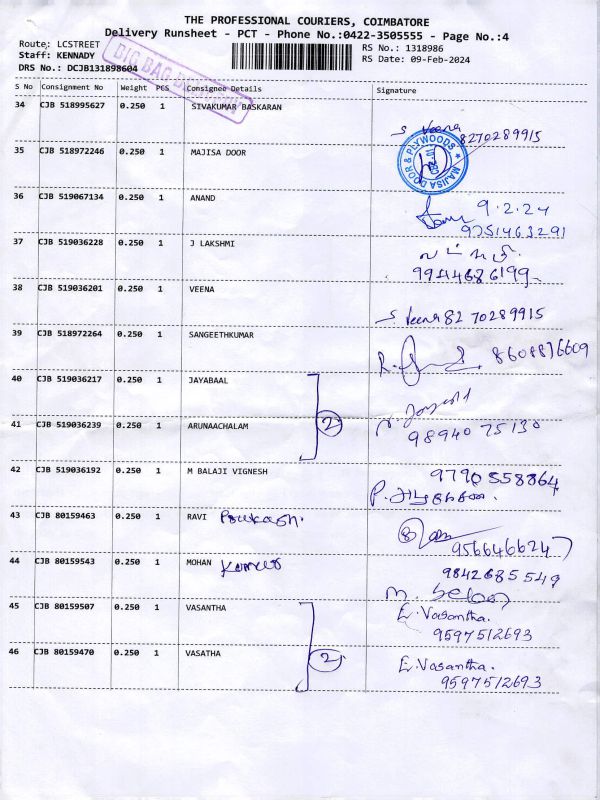 THE PROFESSIONAL COURIERS, COIMBATORE
Delivery Runsheet - PCT - Phone No.:0422-3505555 - Page No.:4
Route: LCSTREET
RS No.: 1318986
Staff: KENNADY
RS Date: 09-Feb-2024
DRS No.: DCJB131898604
BIG BAG
S No Consignment No Weight PCS Consignee Details Signature
34 CJB 518995627 0.250 1 SIVAKUMAR BASKARAN
S Veena
8270289915
35 CJB 518972246 0.250 1 MAJISA DOOR
MAJISA DOOR & PLYWOODS
36 CJB 519067134 0.250 1 ANAND
9.2.24
9751463291
37 CJB 519036228 0.250 1 J LAKSHMI
லட்சுமி
9944686199
38 CJB 519036201 0.250 1 VEENA
S Veena 8270289915
39 CJB 518972264 0.250 1 SANGEETHKUMAR
8608876609
40 CJB 519036217 0.250 1 JAYABAAL
2
41 CJB 519036239 0.250 1 ARUNAACHALAM
9894075130
42 CJB 519036192 0.250 1 M BALAJI VIGNESH
9790558864
43 CJB 80159463 0.250 1 RAVI Prakash.
9566466247
44 CJB 80159543 0.250 1 MOHAN Kumar
9842685549
45 CJB 80159507 0.250 1 VASANTHA
E. Vasantha.
9597512693
2
46 CJB 80159470 0.250 1 VASATHA
E. Vasantha.
9597512693